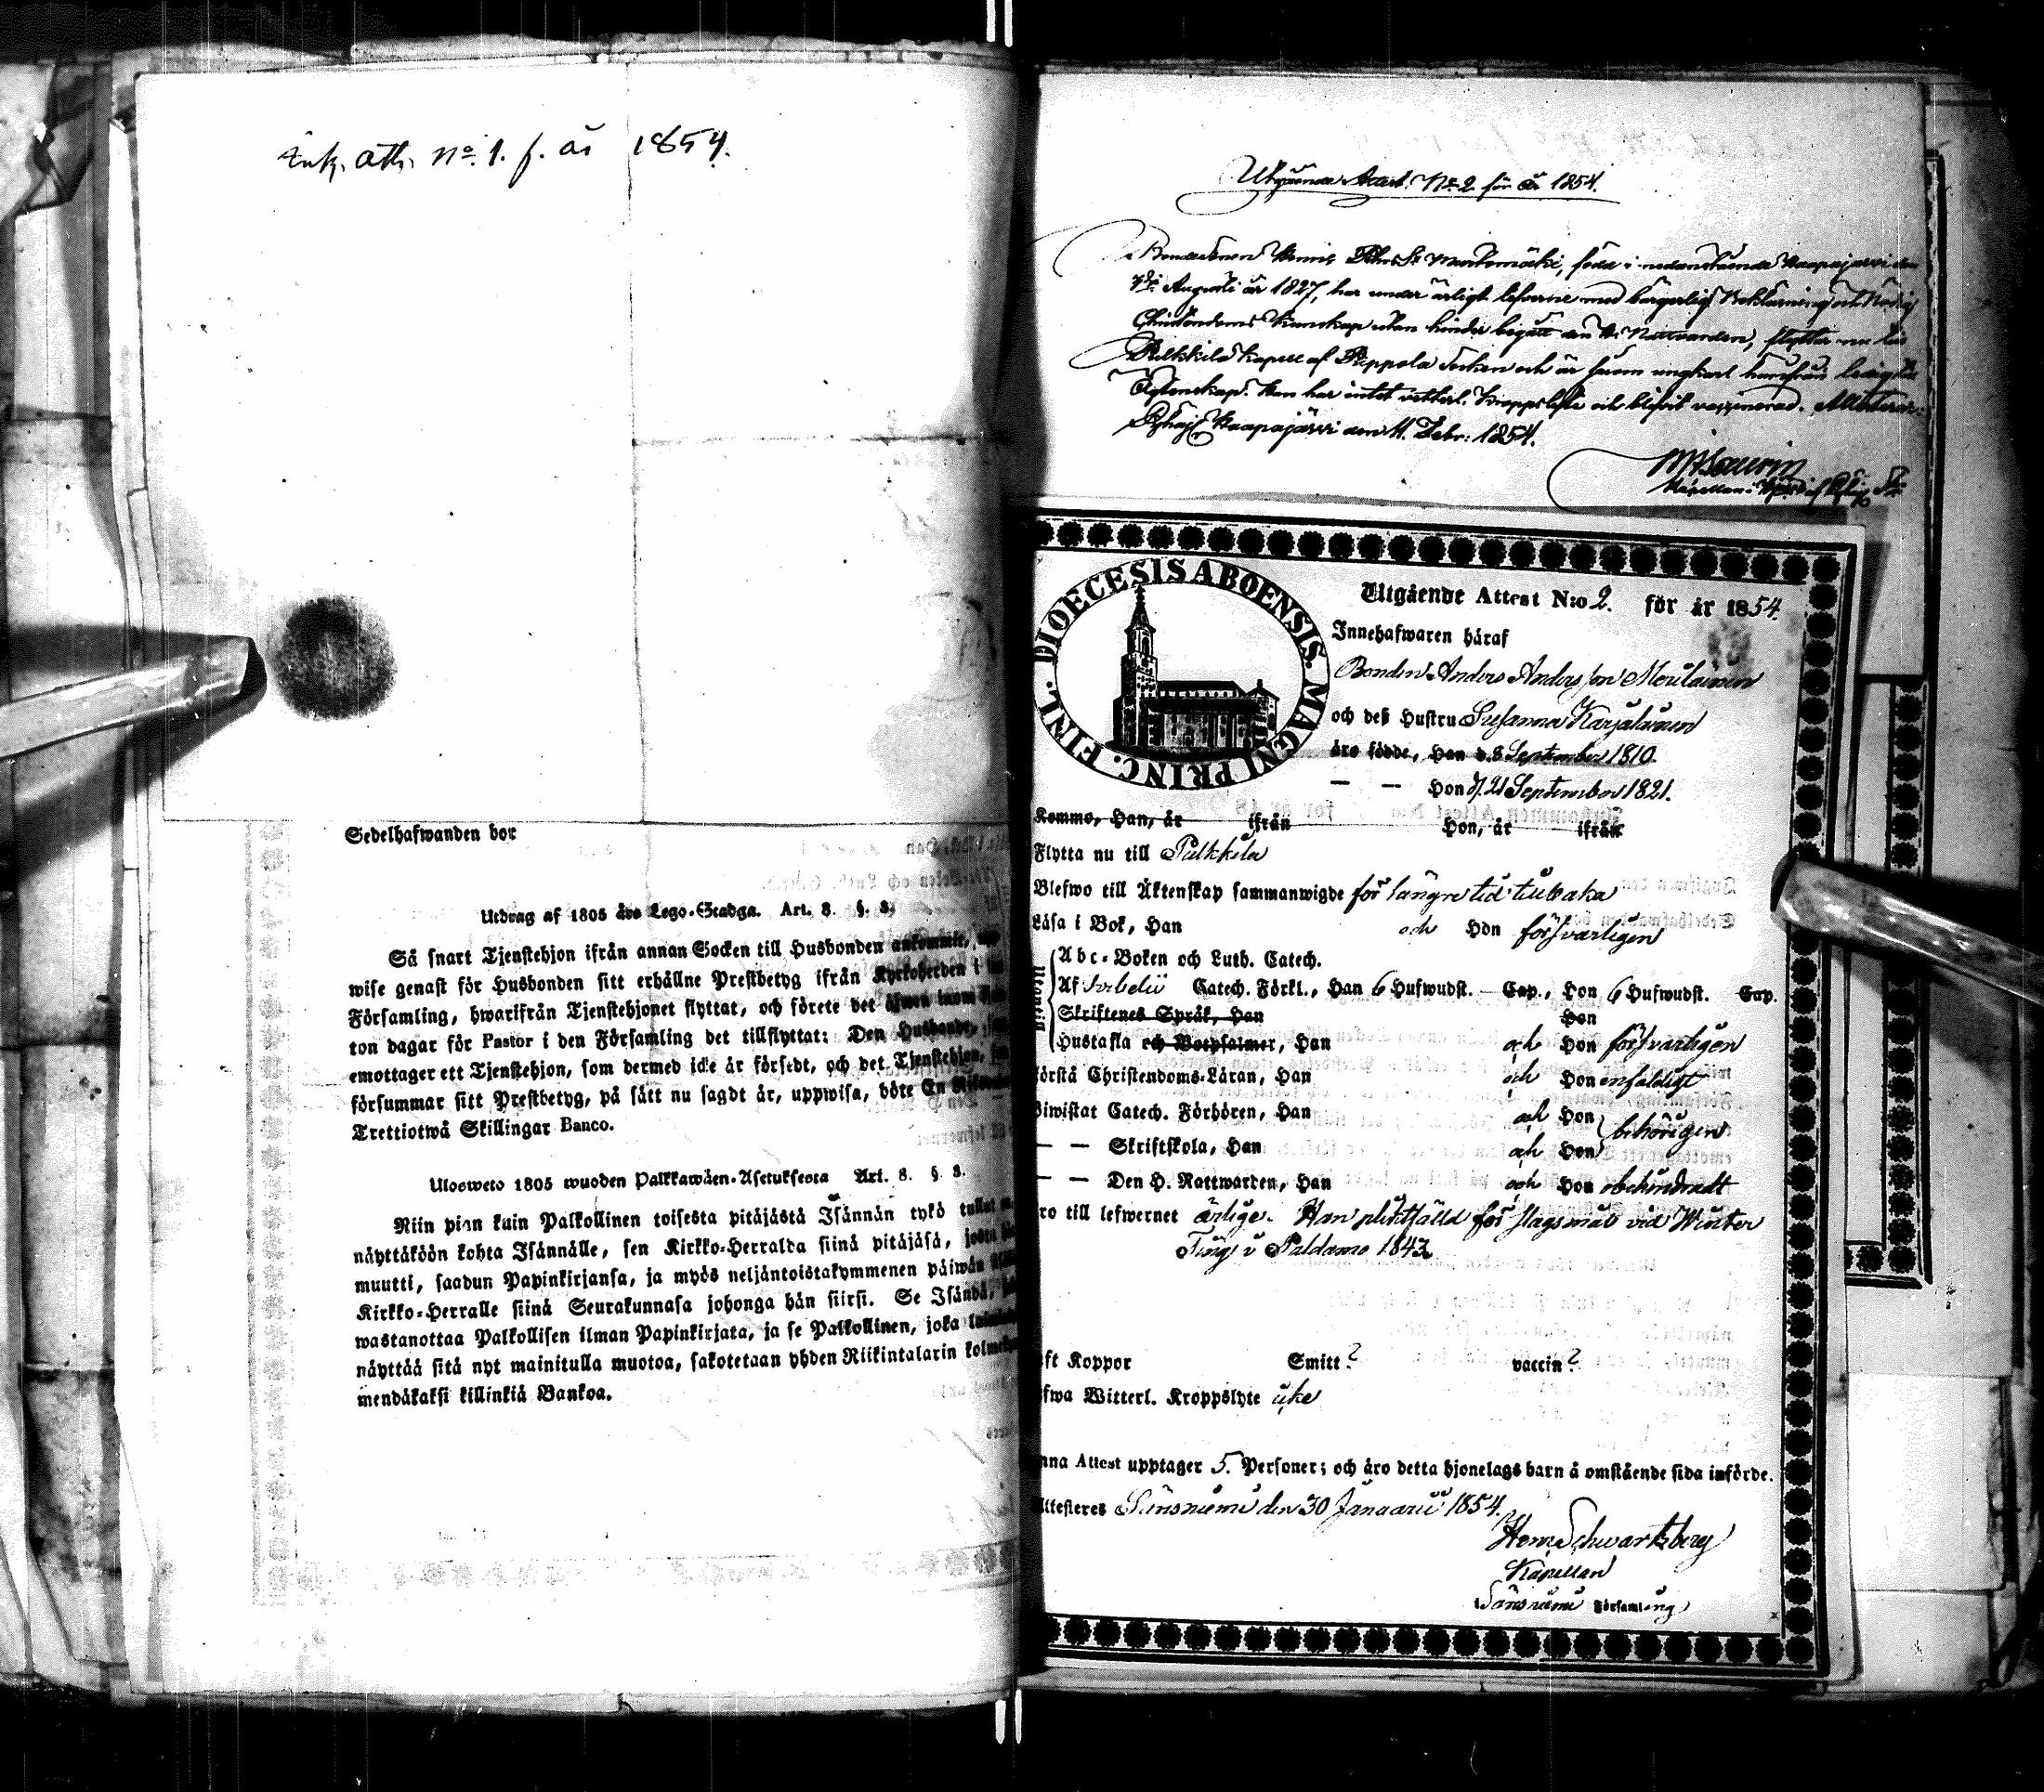 Ink. att. No. 1. f. år 1854.
Sedelhafwanden bor
Utdrag af 1805 års Lego-Stadga. Art. 8. §. 3.
Så snart Tjenstehjon ifrån annan Socken till Husbonden ankommit,
wise genast för Husbonden sitt erhållne Prestbetyg ifrån Kyrkoherden i
Församling, hwarifrån Tjenstehjonet flyttat, och förete det äfwen inom
ton dagar för Pastor i den Församling det tillflyttat: Den Husbonde,
emottager ett Tjenstehjon, som dermed icke är försedt, och det Tjenstehjon,
försummar sitt Prestbetyg, på sätt nu sagdt är, uppwisa, böte En
Trettiotwå Skillingar Banco.
Ulosweto 1805 wuoden Palkkawäen-Asetuksesta Art. 8. §. 3.
Niin pian kuin Palkollinen toisesta pitäjästä Isännän tykö tullut
näyttäköön kohta Isännälle, sen Kirkko-Herralda siinä pitäjäsä, josta
muutti, saadun Papinkirjansa, ja myös neljäntoistakymmenen päiwän
Kirkko-Herralle siinä Seurakunnasa johonga hän siirsi. Se Isändä,
wastanottaa Palkollisen ilman Papinkirjata, ja se Palkollinen, joka
näyttää sitä nyt mainitulla muotoa, sakotetaan yhden Riikintalarin
mendäkaksi killinkiä Bankoa.
Utgående Attest. No. 2 för år 1854.
Bondesonen född i nedanstående Haapajärvi den
Augusti år 1827, har under ärligt lefverne med
Christendoms Kunskap utan hinder begått den H. Nattvarden, flyttar nu till
Pulkkila kapell af Piippola Socken och är såsom ungkarl härifrån ledig till
Ägtenskap. Han har intet vetterl. Kroppslyte och blifvit vaccinerad.
Haapajärvi den 11. Febr. 1854.
FINL. DIOECESIS ABOENSIS. MAGNI PRINC.
Utgående Attest N:o 2. för år 1854.
Innehafwaren häraf
Bonden Anders Andersson Moilainen
och deß Hustru Susanna Karjalainen
äro födde, Han d. 8 September 1810.
— — Hon d. 21 September 1821.
Kommo, Han, år ifrån Hon, år ifrån
Flytta nu till Pulkkila
Blefwo till Äktenskap sammanwigde för längre tid tillbaka
Läsa i Bok, Han och Hon försvarligen
Abc-Boken och Luth. Catech.
Af Svebelii Catech. Förkl., Han 6 Hufwudst. — Cap., Hon 6 Hufwudst. Cap.
Skriftenes Språk, Han Hon
Hustafla och Botpsalmer, Han och Hon försvarligen
örstå Christendoms-Läran, Han och Hon enfaldigt
Biwistat Catech. Förhören, Han och Hon behörigen
— — Skriftskola, Han och Hon
— — Den H. Nattwarden, Han och Hon obehindradt
ro till lefwernet ärlige. Han pliktfälld för slagsmål vid Winter
Ting i Paldamo 1843.
ft Koppor Smitt? vaccin?
fwa Witterl. Kroppslyte icke
nna Attest upptager 5. Personer; och äro detta hjonelags barn å omstående sida införde.
Attesteres Säräisniemi den 30 Januarii 1854.
Schwartzberg
Kapellan
Säräisniemi Församling